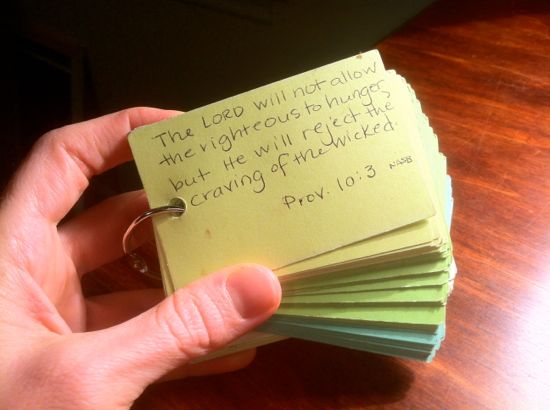 The LORD will not allow
the righteous to hunger,
but He will reject the
craving of the wicked.
Prov. 10:3 NASB